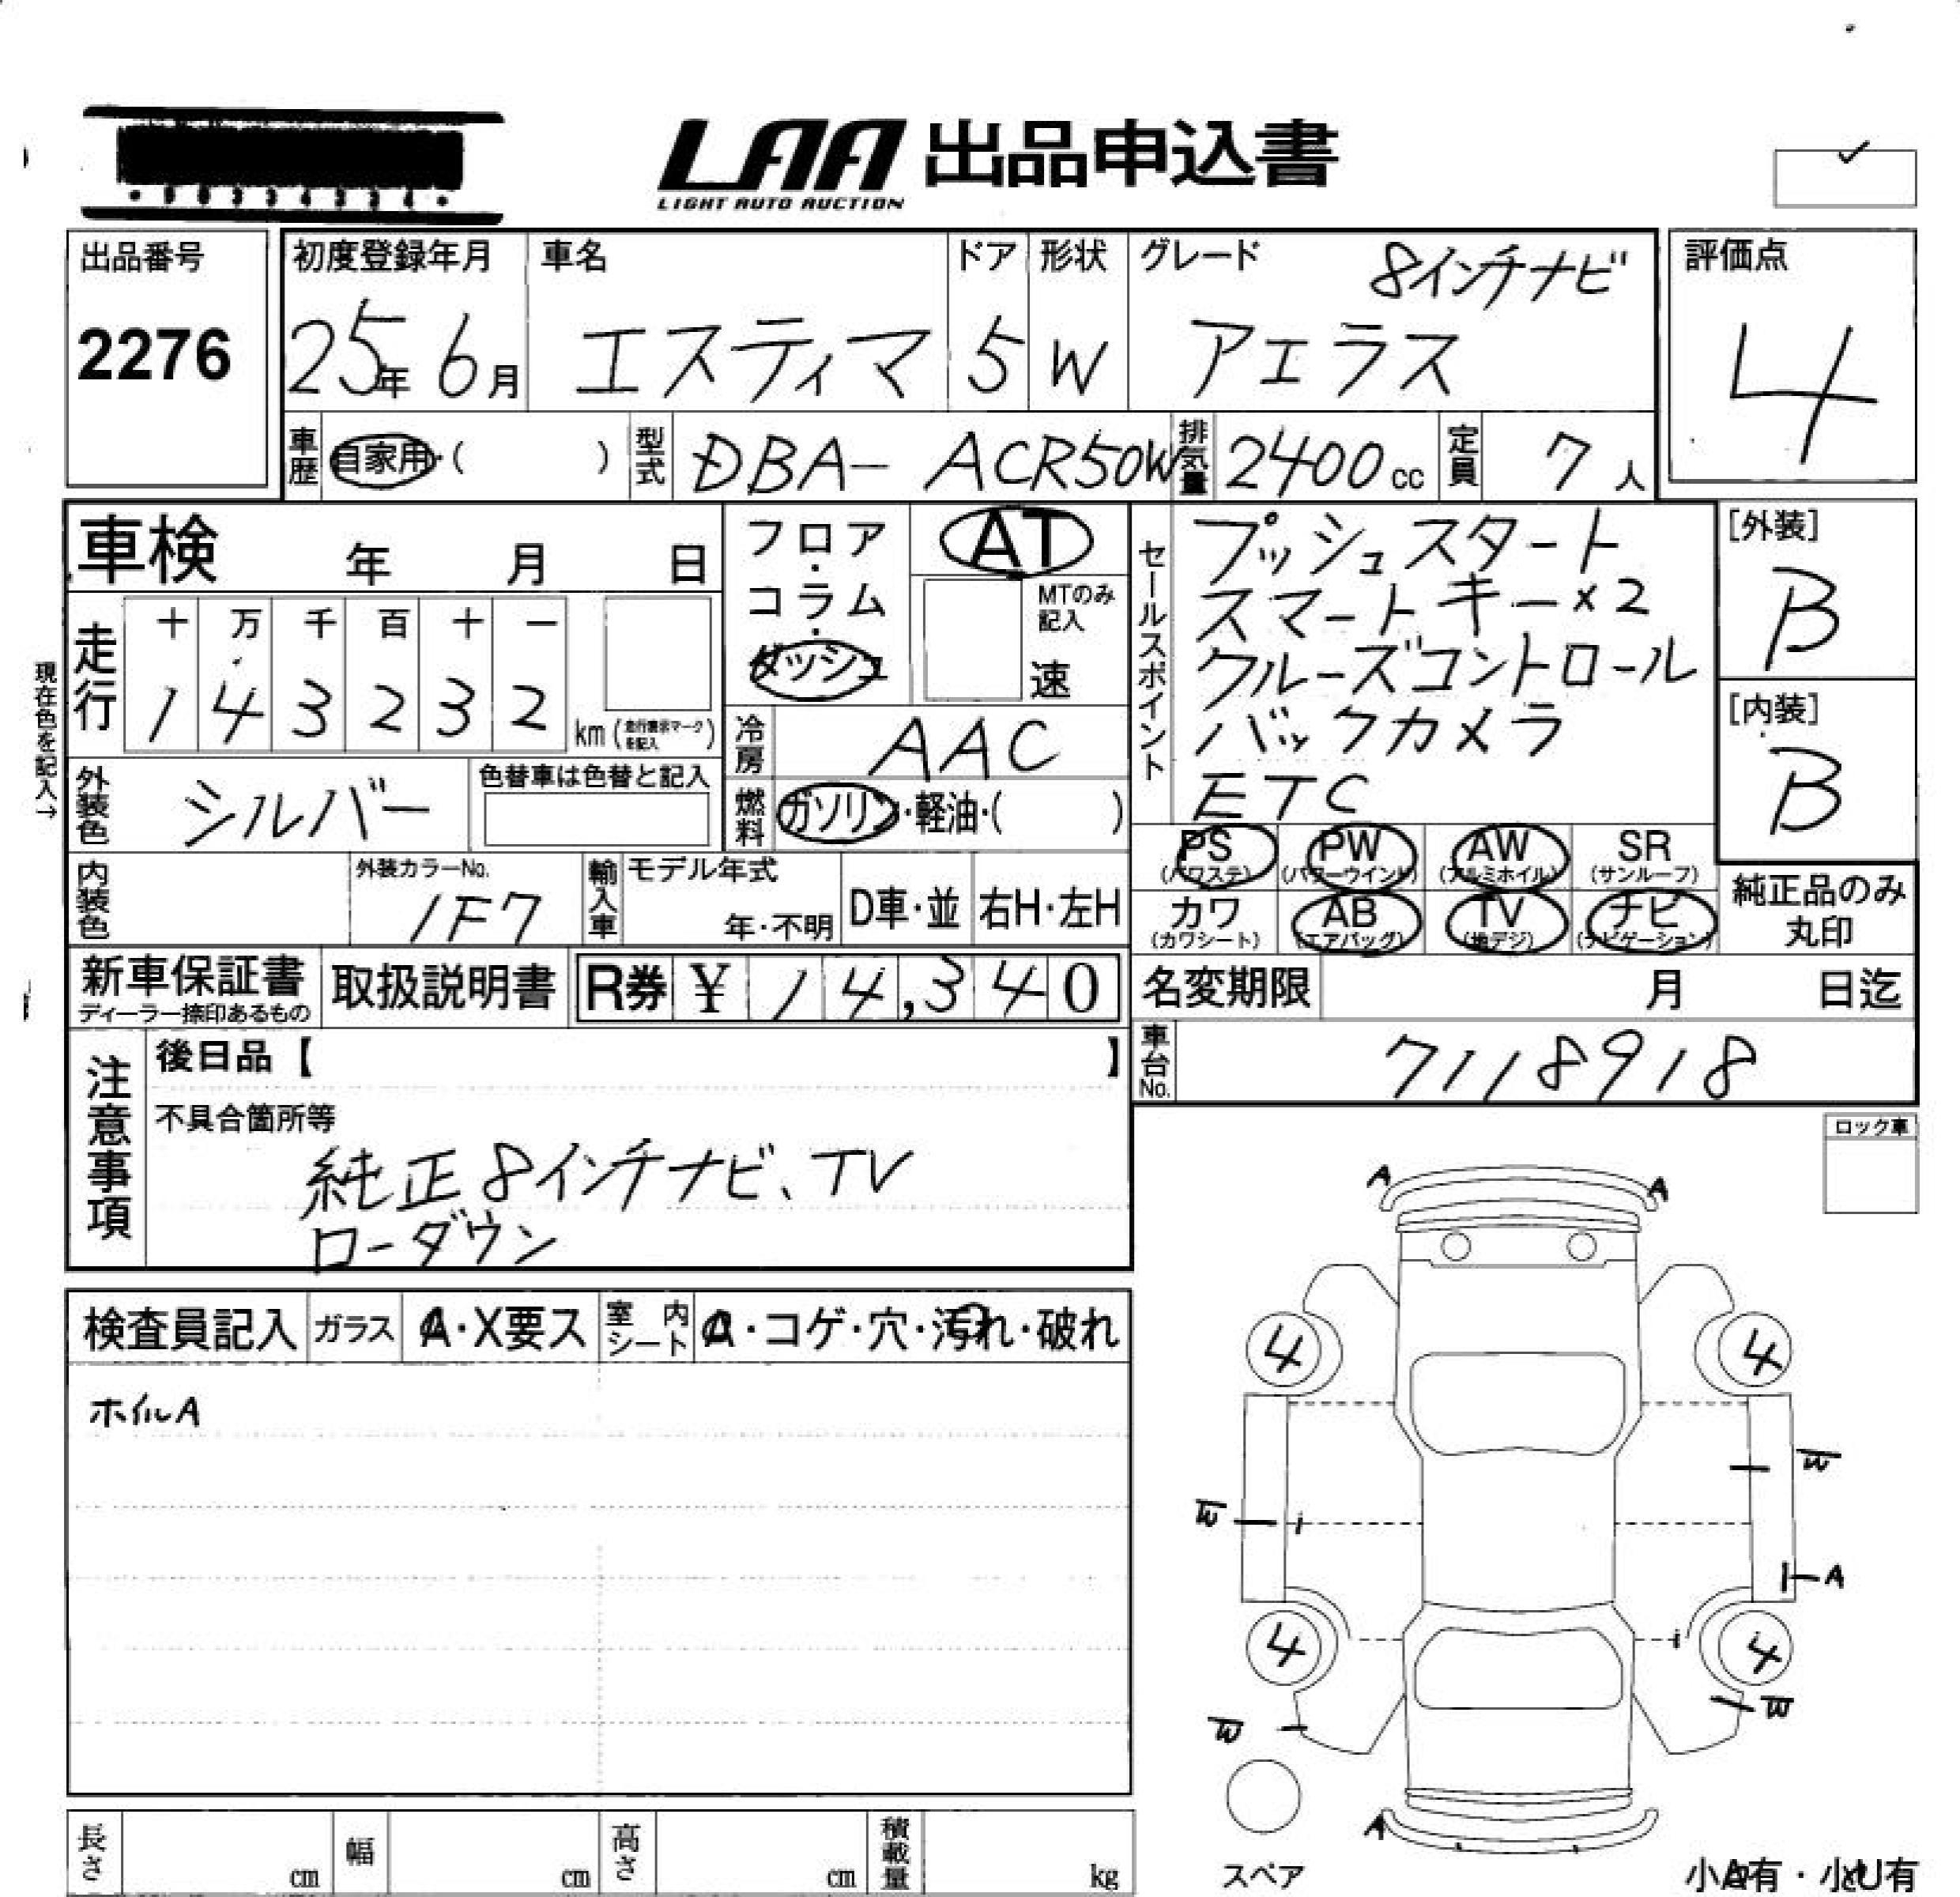 LAA 出品申込書
LIGHT AUTO AUCTION
出品番号
2276
初度登録年月
25年 6月
車名
エスティマ
ドア
5
形状
W
グレード
8インチナビ
アエラス
評価点
4
車歴 自家用・( )
型式 DBA- ACR50W
排気量 2400cc
定員 7人
車検 年 月 日
現在色を記入→
走行
十 万 千 百 十 一
1 4 3 2 3 2
km(走行表示マークを記入)
フロア・
コラム・
ダッシュ
AT
MTのみ記入
速
冷房 AAC
燃料 ガソリン・軽油・( )
外装色 シルバー
色替車は色替と記入
内装色
外装カラーNo.
1F7
輸入車
モデル年式
年・不明
D車・並
右H・左H
セールスポイント
プッシュスタート
スマートキー×2
クルーズコントロール
バックカメラ
ETC
[外装]
B
[内装]
B
PS (パワステ)
PW (パワーウインド)
AW (アルミホイル)
SR (サンルーフ)
カワ (カワシート)
AB (エアバッグ)
TV (地デジ)
ナビ (ナビゲーション)
純正品のみ
丸印
新車保証書
ディーラー捺印あるもの
取扱説明書
R券 ¥ 14,340
名変期限 月 日迄
車台No. 7118918
注意事項
後日品【 】
不具合箇所等
純正8インチナビ、TV
ローダウン
ロック車
検査員記入
ガラス A・X要ス
室内シート
・コゲ・穴・汚れ・破れ
ホイルA
A A
4 4
W
W
A
4 4
W
W
A
スペア
小A有・小U有
長さ cm
幅 cm
高さ cm
積載量 kg